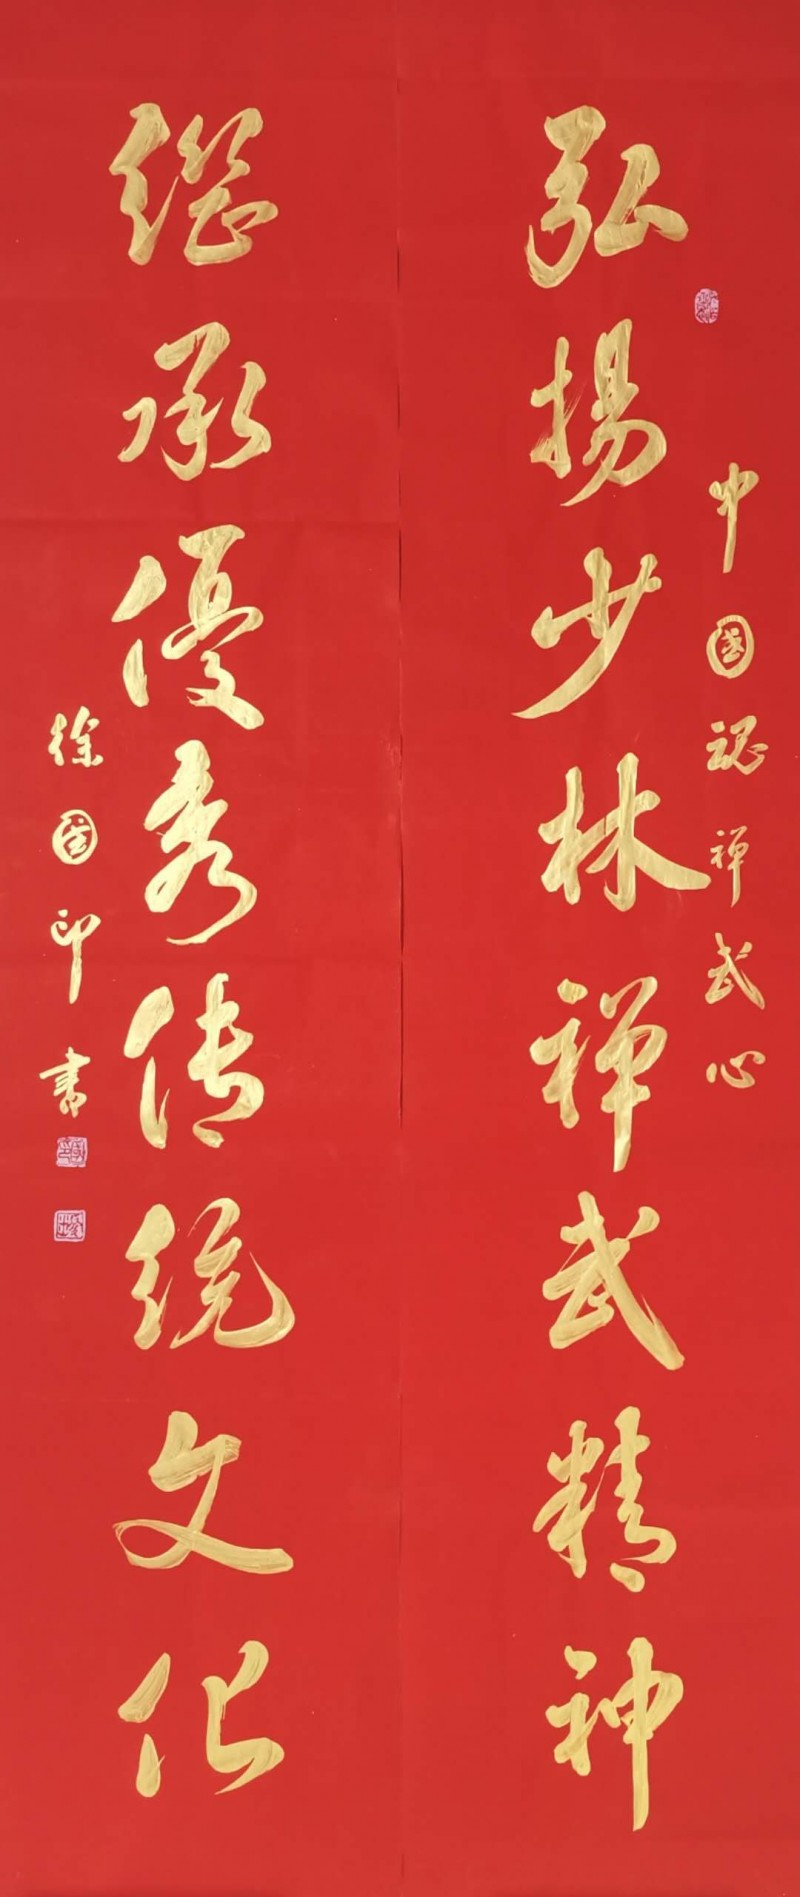 中国魂禅武心
弘揚少林禅武精神
繼承優秀传统文化
徐国印書